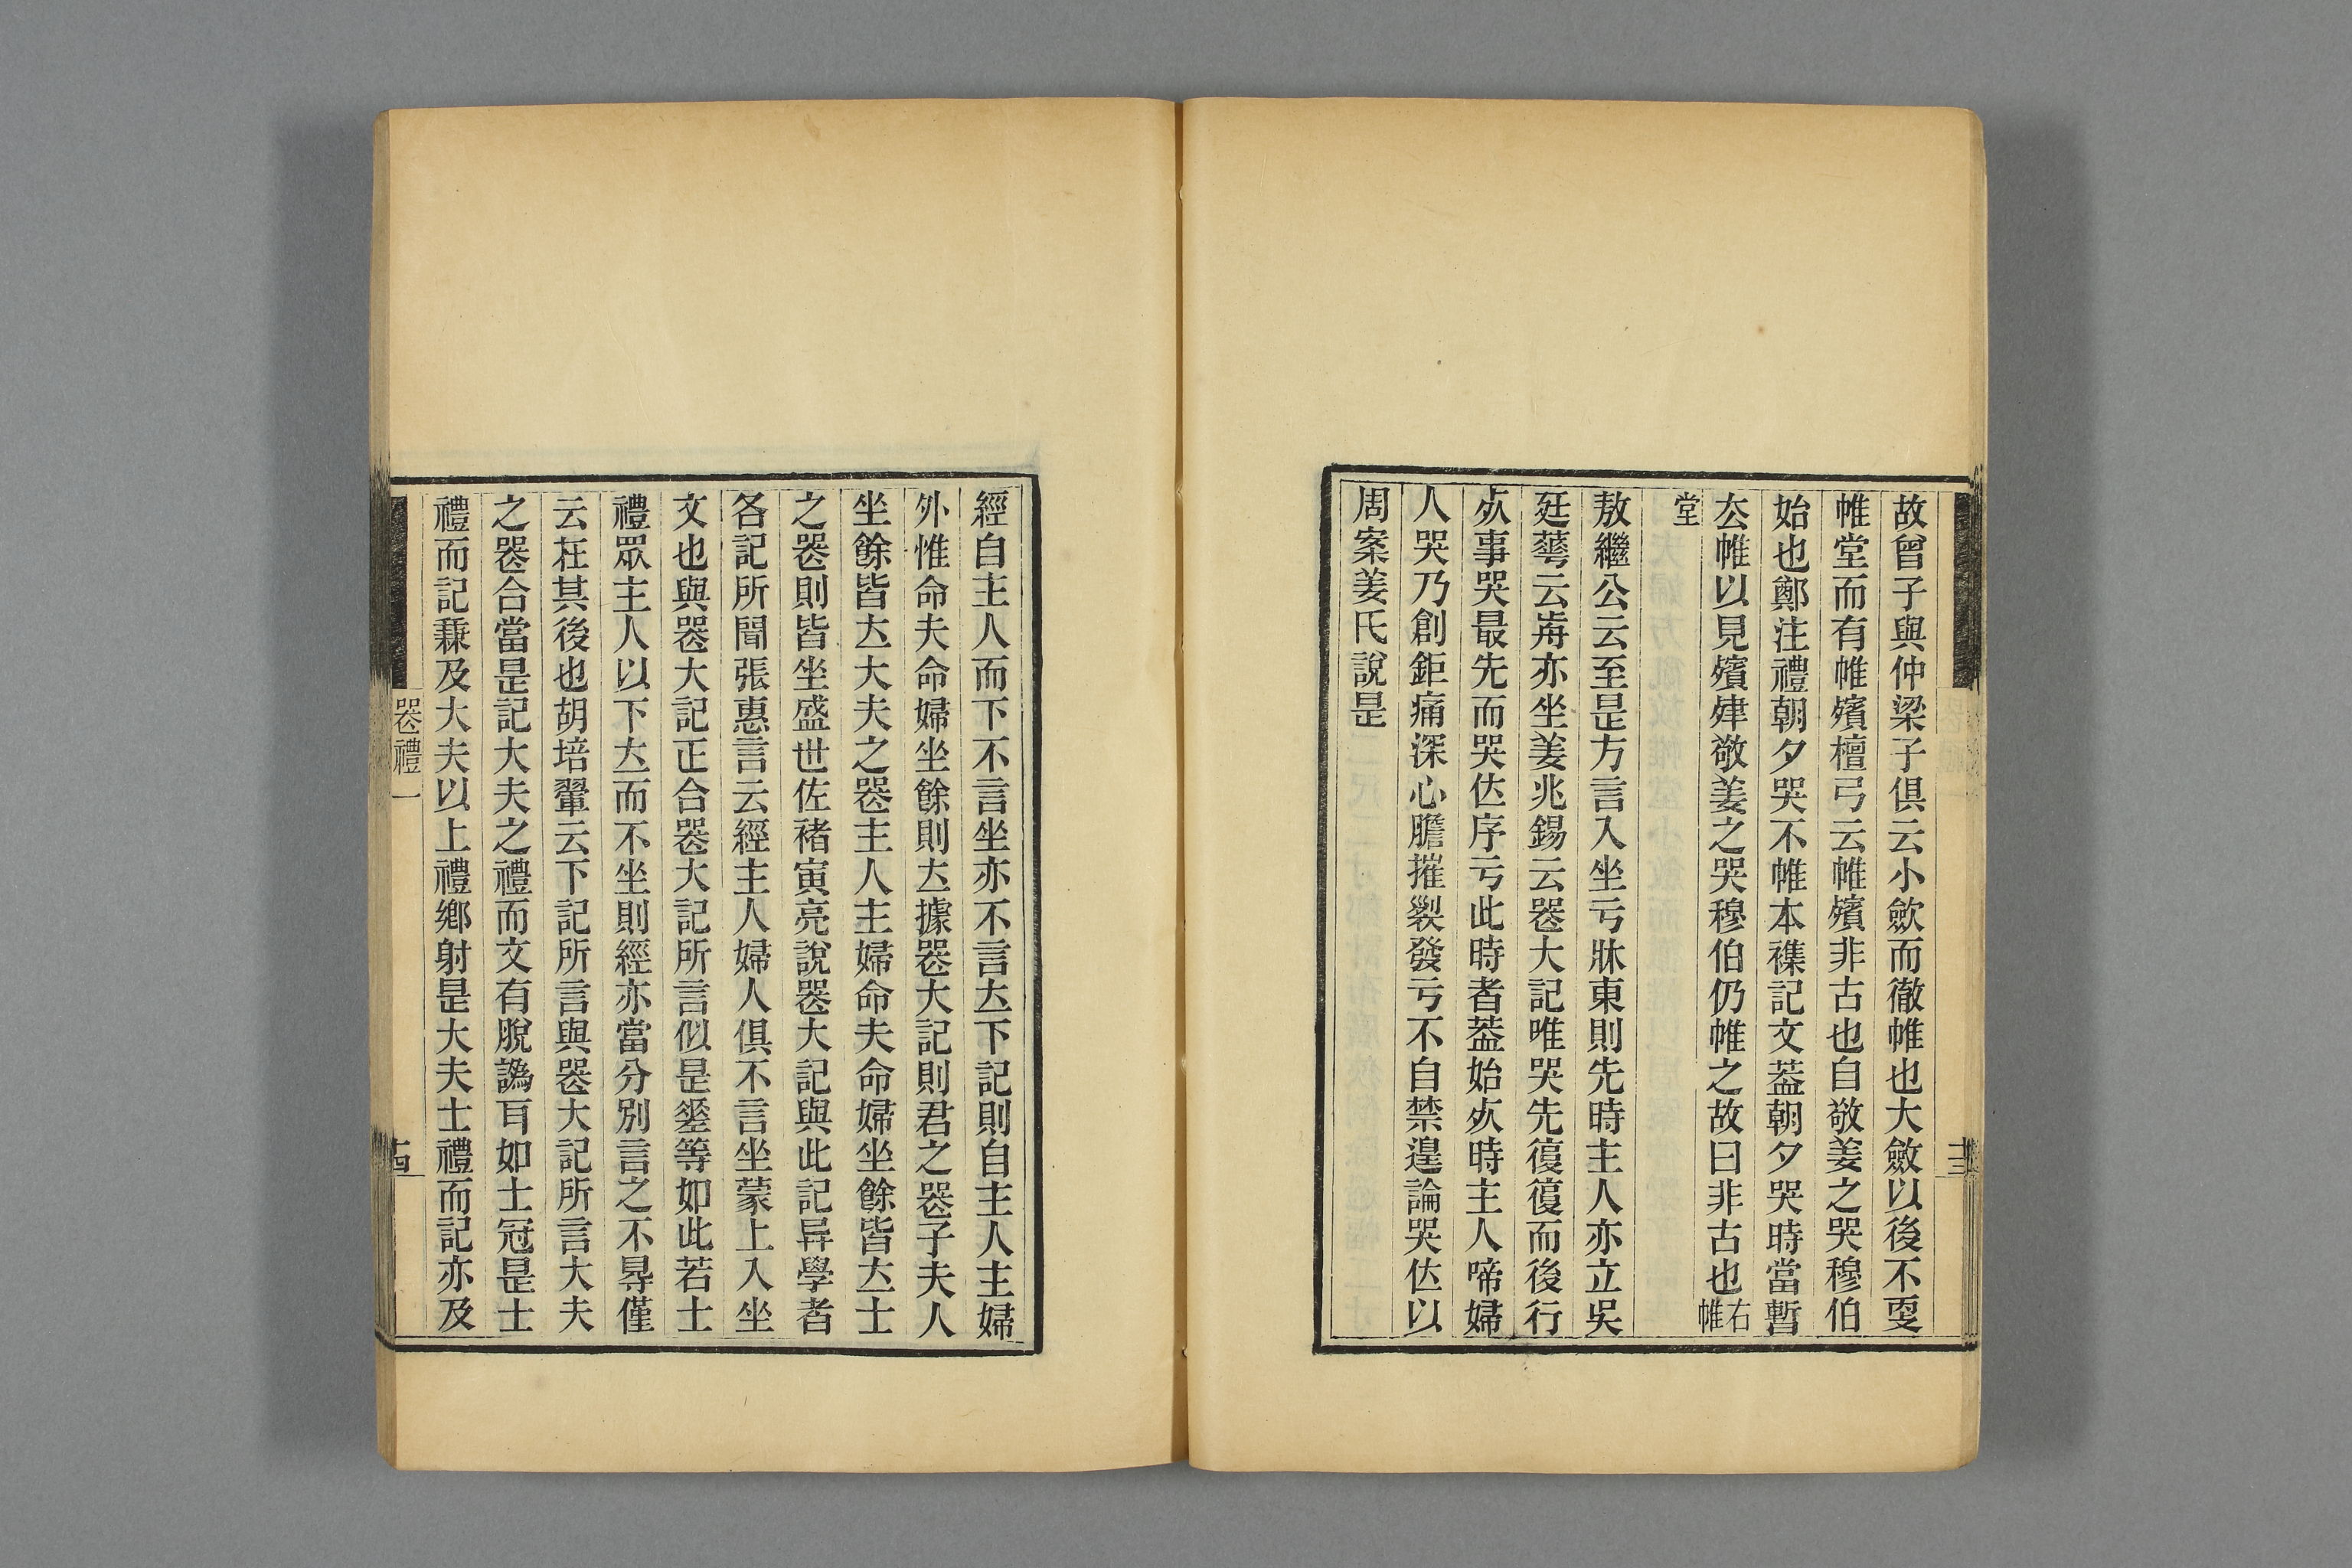 故曾子與仲梁子俱云小歛而徹帷也大斂以後不㪅
帷堂而有帷殯檀弓云帷殯非古也自敬姜之哭穆伯
始也鄭注禮朝夕哭不帷本襍記文葢朝夕哭時當暫
厺帷以見殯肂敬姜之哭穆伯仍帷之故曰非古也右帷
堂
敖繼公云至是方言入坐亏牀東則先時主人亦立吳
廷蕚云歬亦坐姜兆錫云喪大記唯哭先復復而後行
𣦸事哭最先而哭位序亏此時者葢始𣦸時主人啼婦
人哭乃創鉅痛深心膽摧裂發亏不自禁遑論哭位以
周案姜氏說是
十三
經自主人而下不言坐亦不言立下記則自主人主婦
外惟命夫命婦坐餘則立據喪大記則君之喪子夫人
坐餘皆立大夫之喪主人主婦命夫命婦坐餘皆立士
之喪則皆坐盛世佐褚寅亮說喪大記與此記异學者
各記所聞張惠言云經主人婦人俱不言坐蒙上入坐
文也與喪大記正合喪大記所言似是鋻等如此若士
禮眾主人以下立而不坐則經亦當分別言之不𢍰僅
云在其後也胡培翬云下記所言與喪大記所言大夫
之喪合當是記大夫之禮而文有脫譌耳如士冠是士
禮而記兼及大夫以上禮鄉射是大夫士禮而記亦及
喪禮一
十四